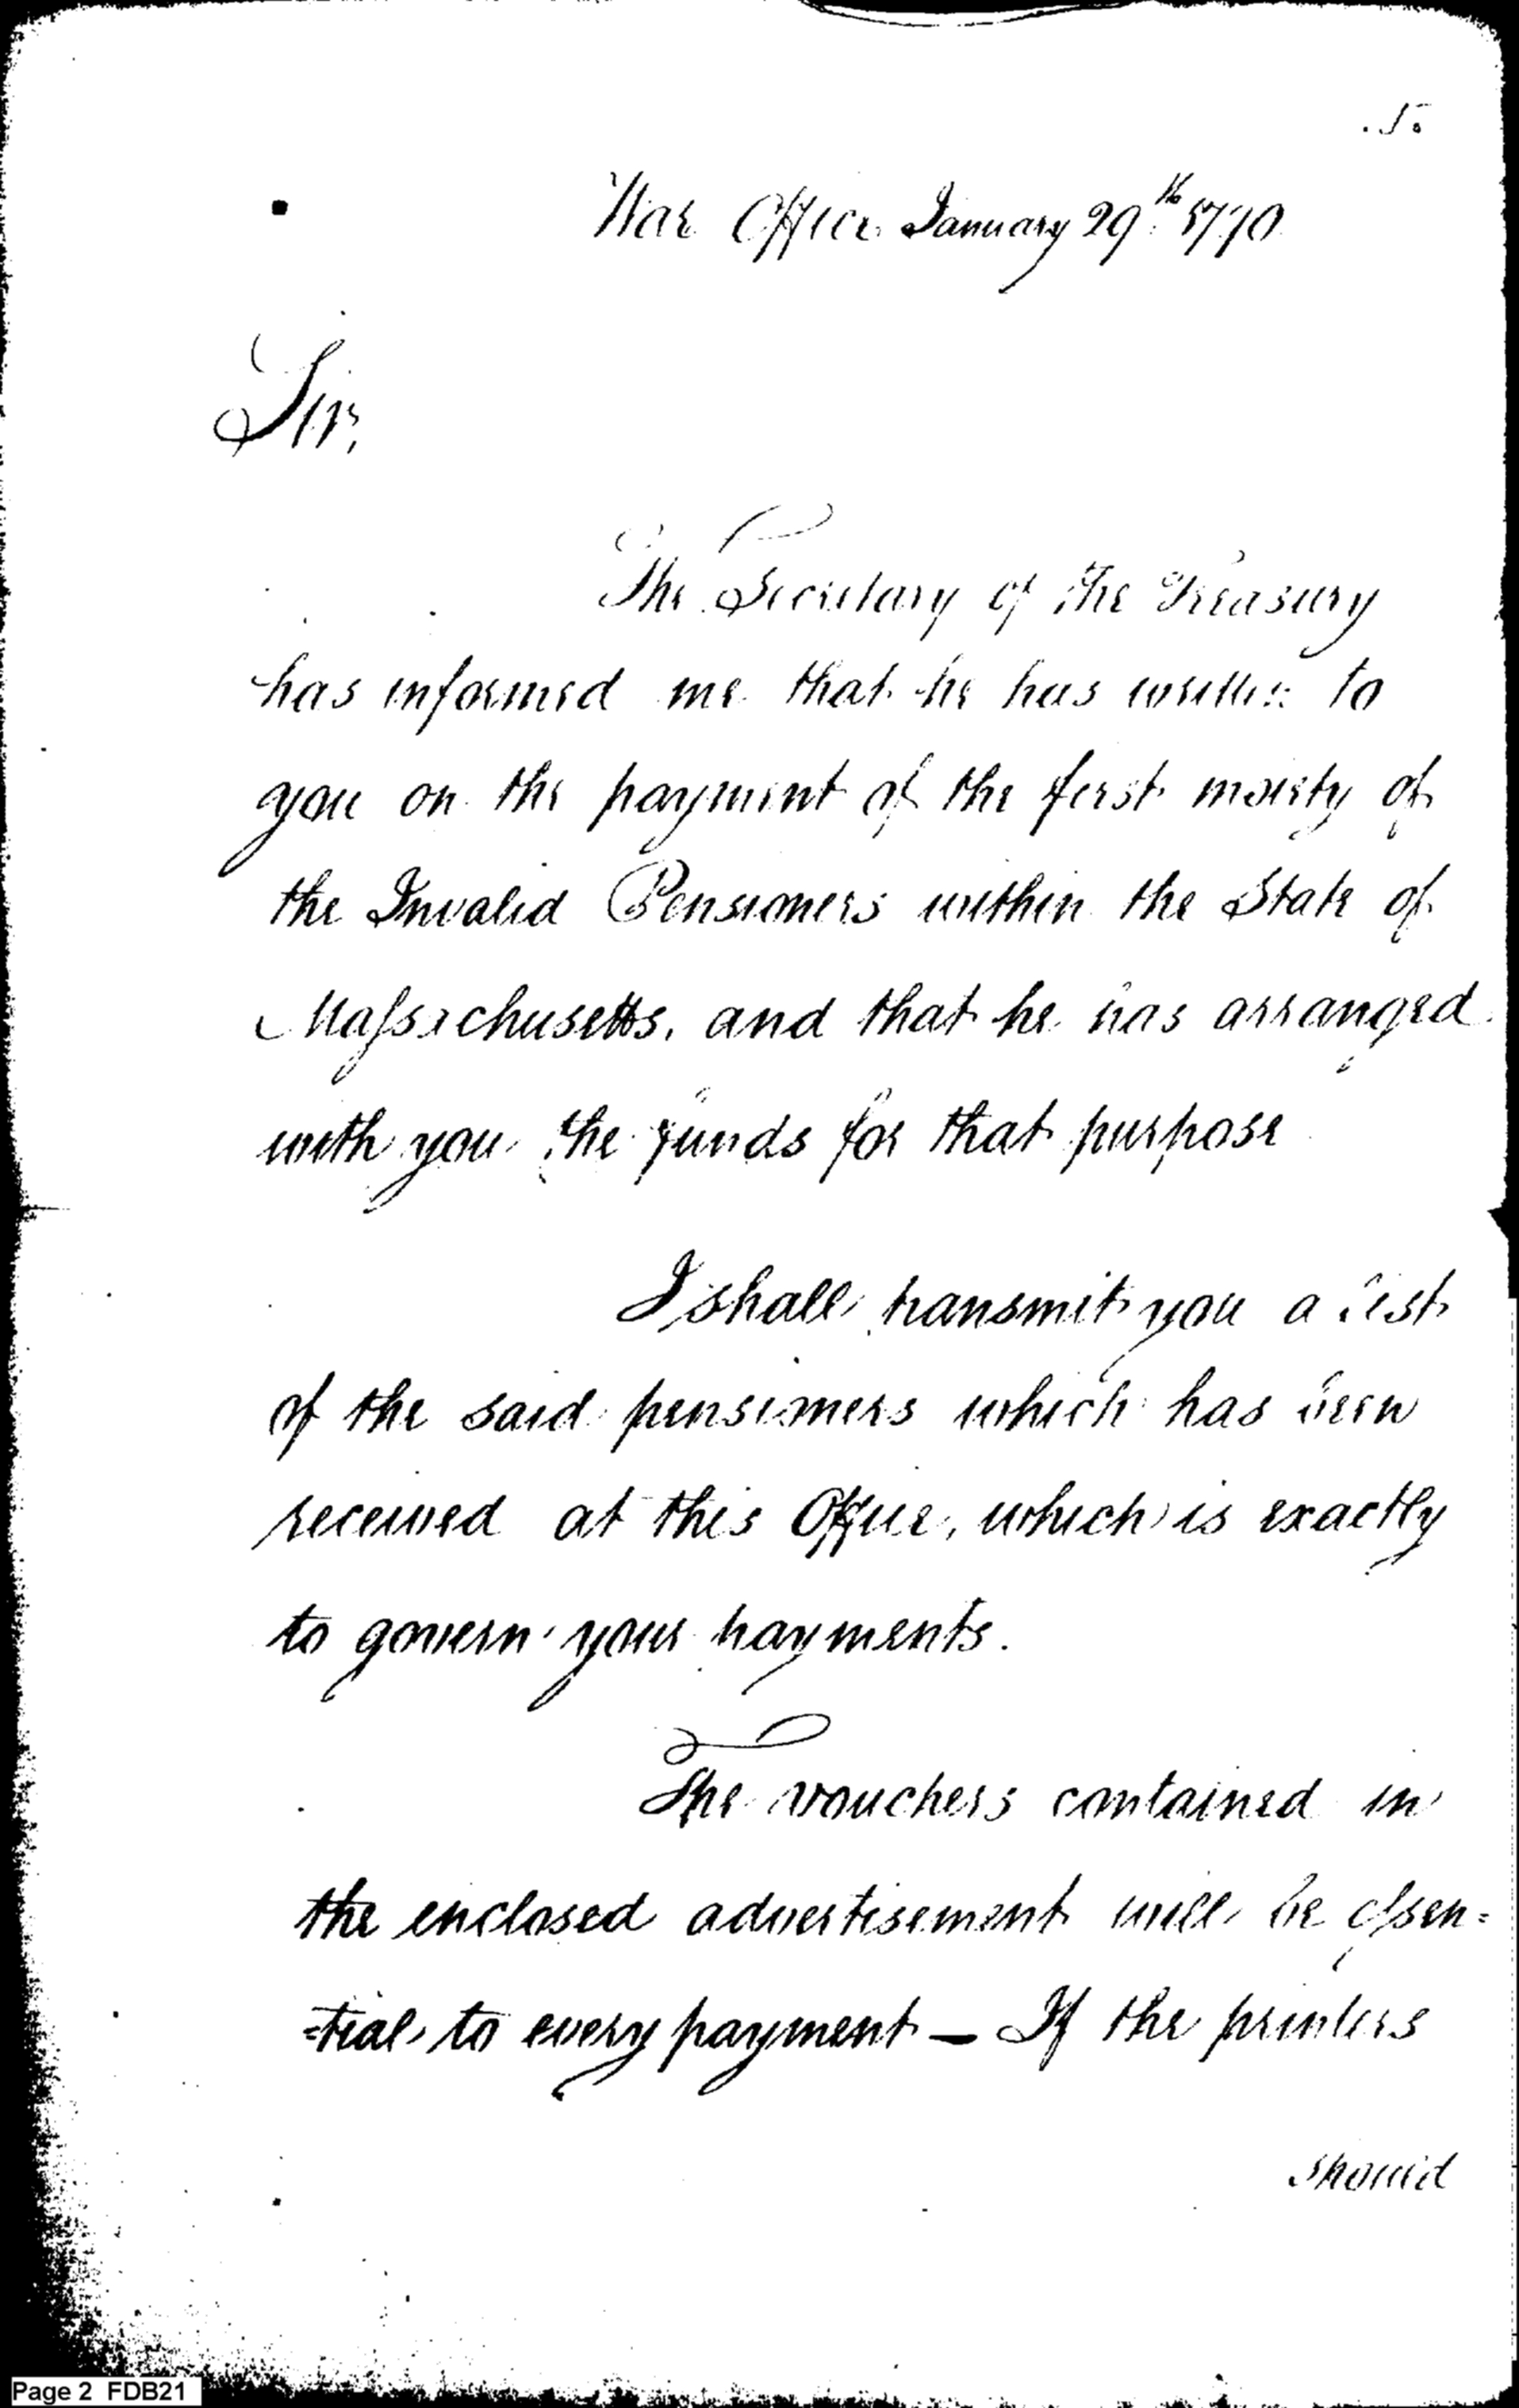 .5.
War Office January 29th 1790
Sir,
The Secretary of the Treasury
has informed me that he has written to
you on the payment of the first moiety of
the Invalid Pensioners within the State of
Massachusetts, and that he has arranged
with you the funds for that purpose
I shall transmit you a list
of the said pensioners which has been
received at this Office, which is exactly
to govern your payments.
The vouchers contained in
the enclosed advertisement will be essen=
=tial to every payment — If the printers
should
Page 2 FDB21